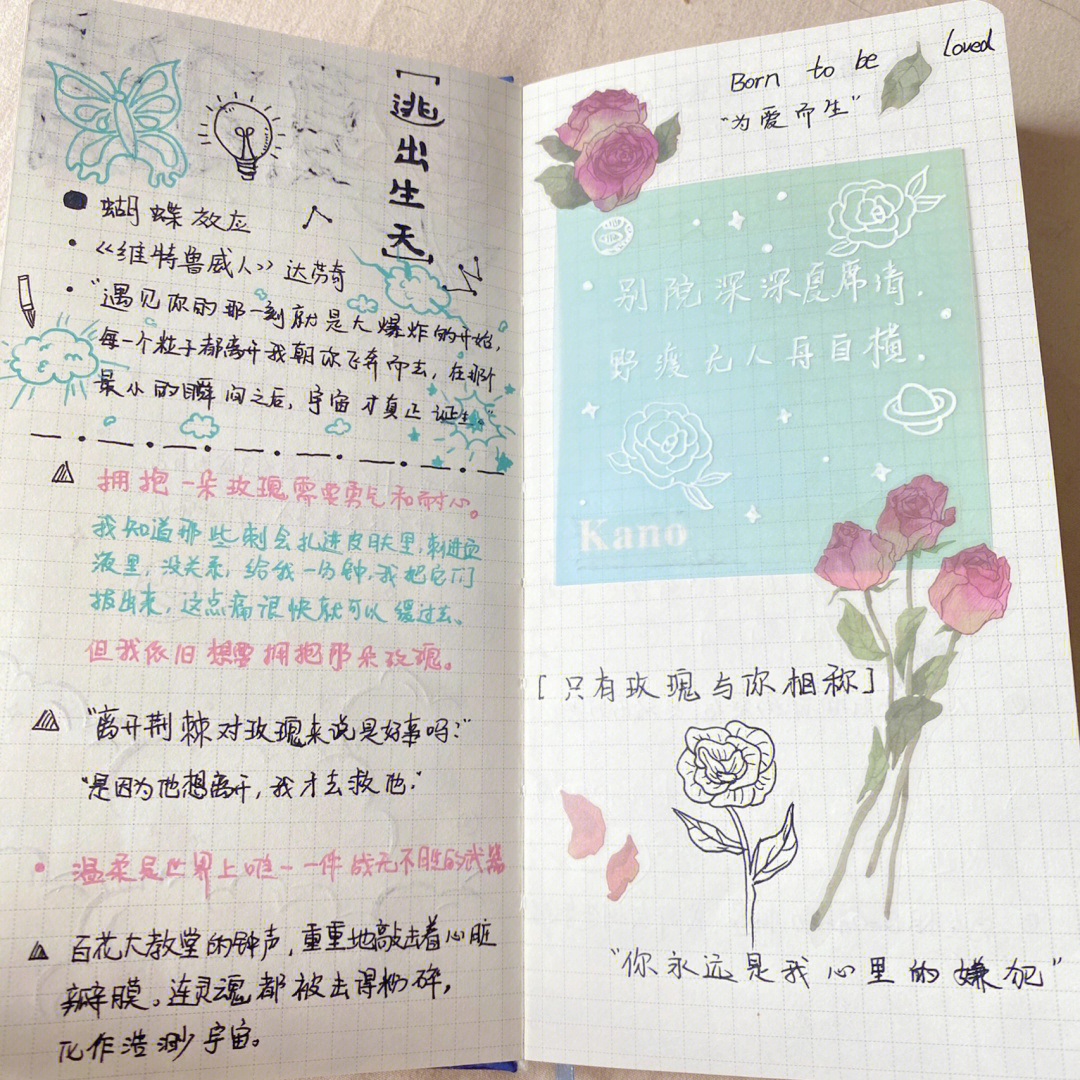 「逃出生天」
蝴蝶效应
《维特鲁威人》达芬奇
"遇见你的那一刻就是大爆炸的开始,
每一个粒子都离开我朝你飞奔而去,在那个
最小的瞬间之后,宇宙才真正诞生。"
拥抱一朵玫瑰需要勇气和耐心。
我知道那些刺会扎进皮肤里,刺进血
液里,没关系,给我一分钟,我把它们
拔出来,这点痛很快就可以缓过去。
但我依旧想要拥抱那朵玫瑰。
"离开荆棘对玫瑰来说是好事吗?"
"是因为他想离开,我才去救他."
温柔是世界上唯一一件战无不胜的武器
百花大教堂的钟声,重重地敲击着心脏
瓣膜。连灵魂都被击得粉碎,
化作浩渺宇宙。
Born to be loved
"为爱而生"
别院深深夏席清.
野渡无人舟自横.
Kano
[只有玫瑰与你相称]
"你永远是我心里的嫌犯"